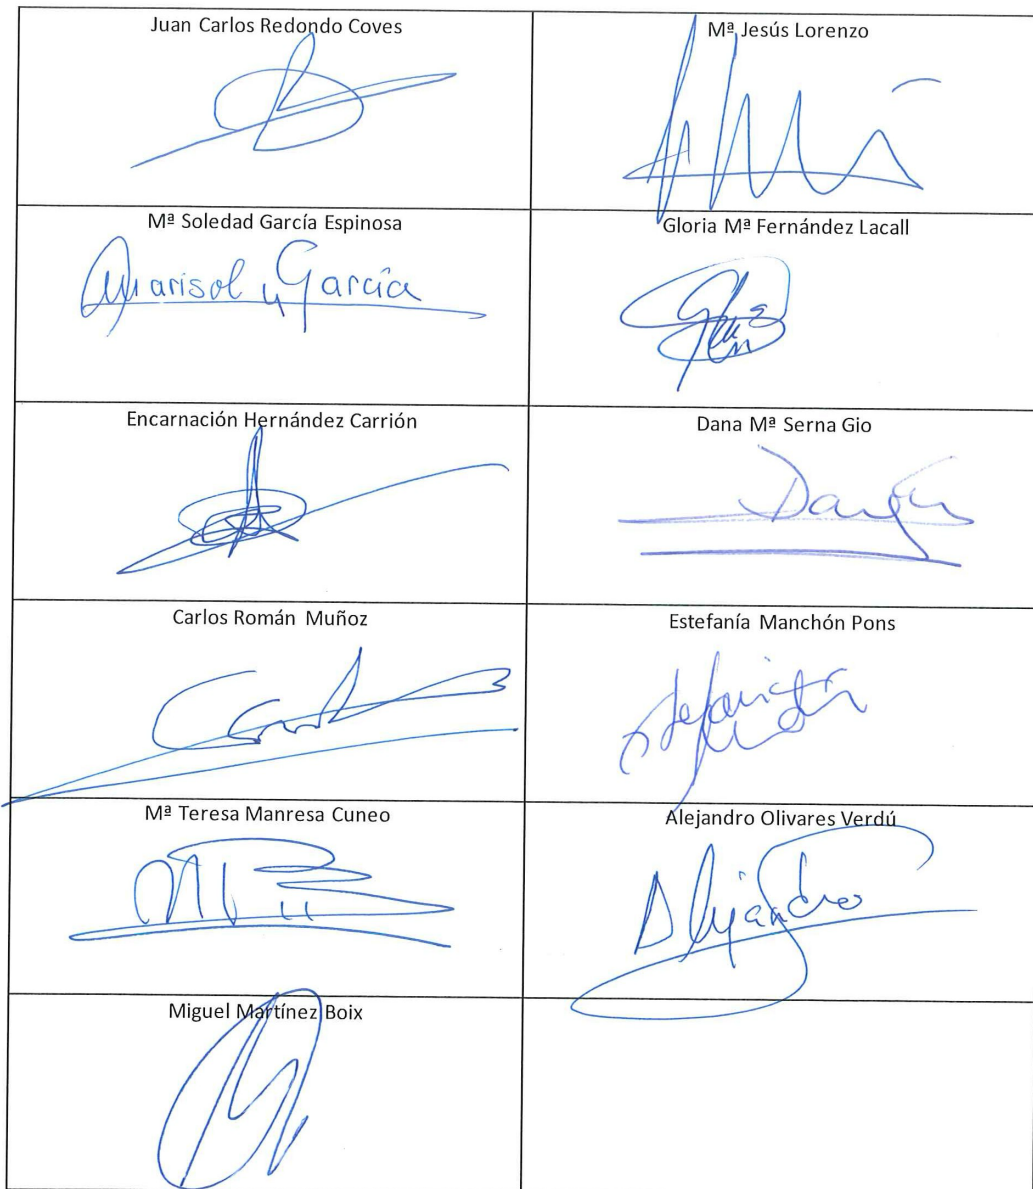 Juan Carlos Redondo Coves
Mª Jesús Lorenzo
Mª Soledad García Espinosa
Gloria Mª Fernández Lacall
Marisol García
Encarnación Hernández Carrión
Dana Mª Serna Gio
Carlos Román Muñoz
Estefanía Manchón Pons
Mª Teresa Manresa Cuneo
Alejandro Olivares Verdú
Alejandro
Miguel Martínez Boix